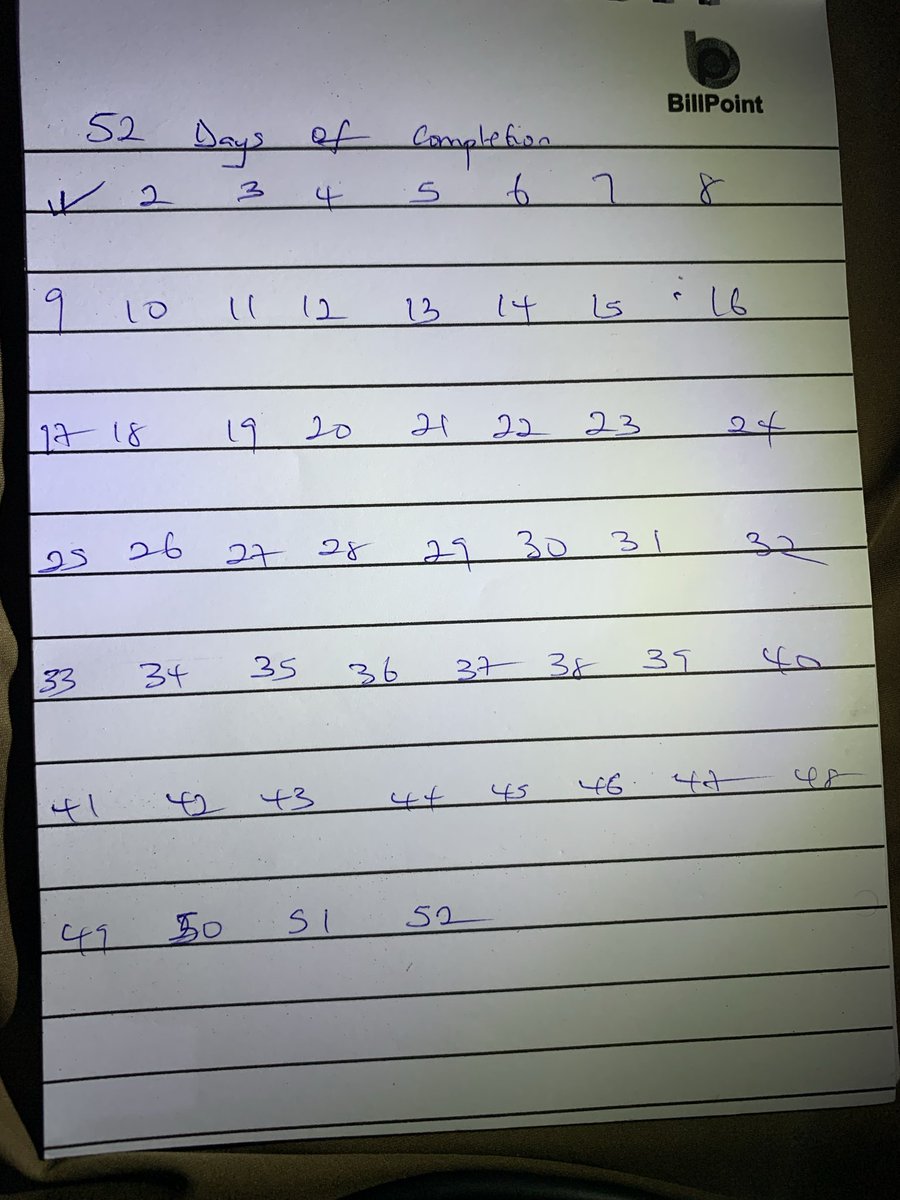 BillPoint
52 Days of Completion
1✓ 2 3 4 5 6 7 8
9 10 11 12 13 14 15 16
17 18 19 20 21 22 23 24
25 26 27 28 29 30 31 32
33 34 35 36 37 38 39 40
41 42 43 44 45 46 47 48
49 50 51 52